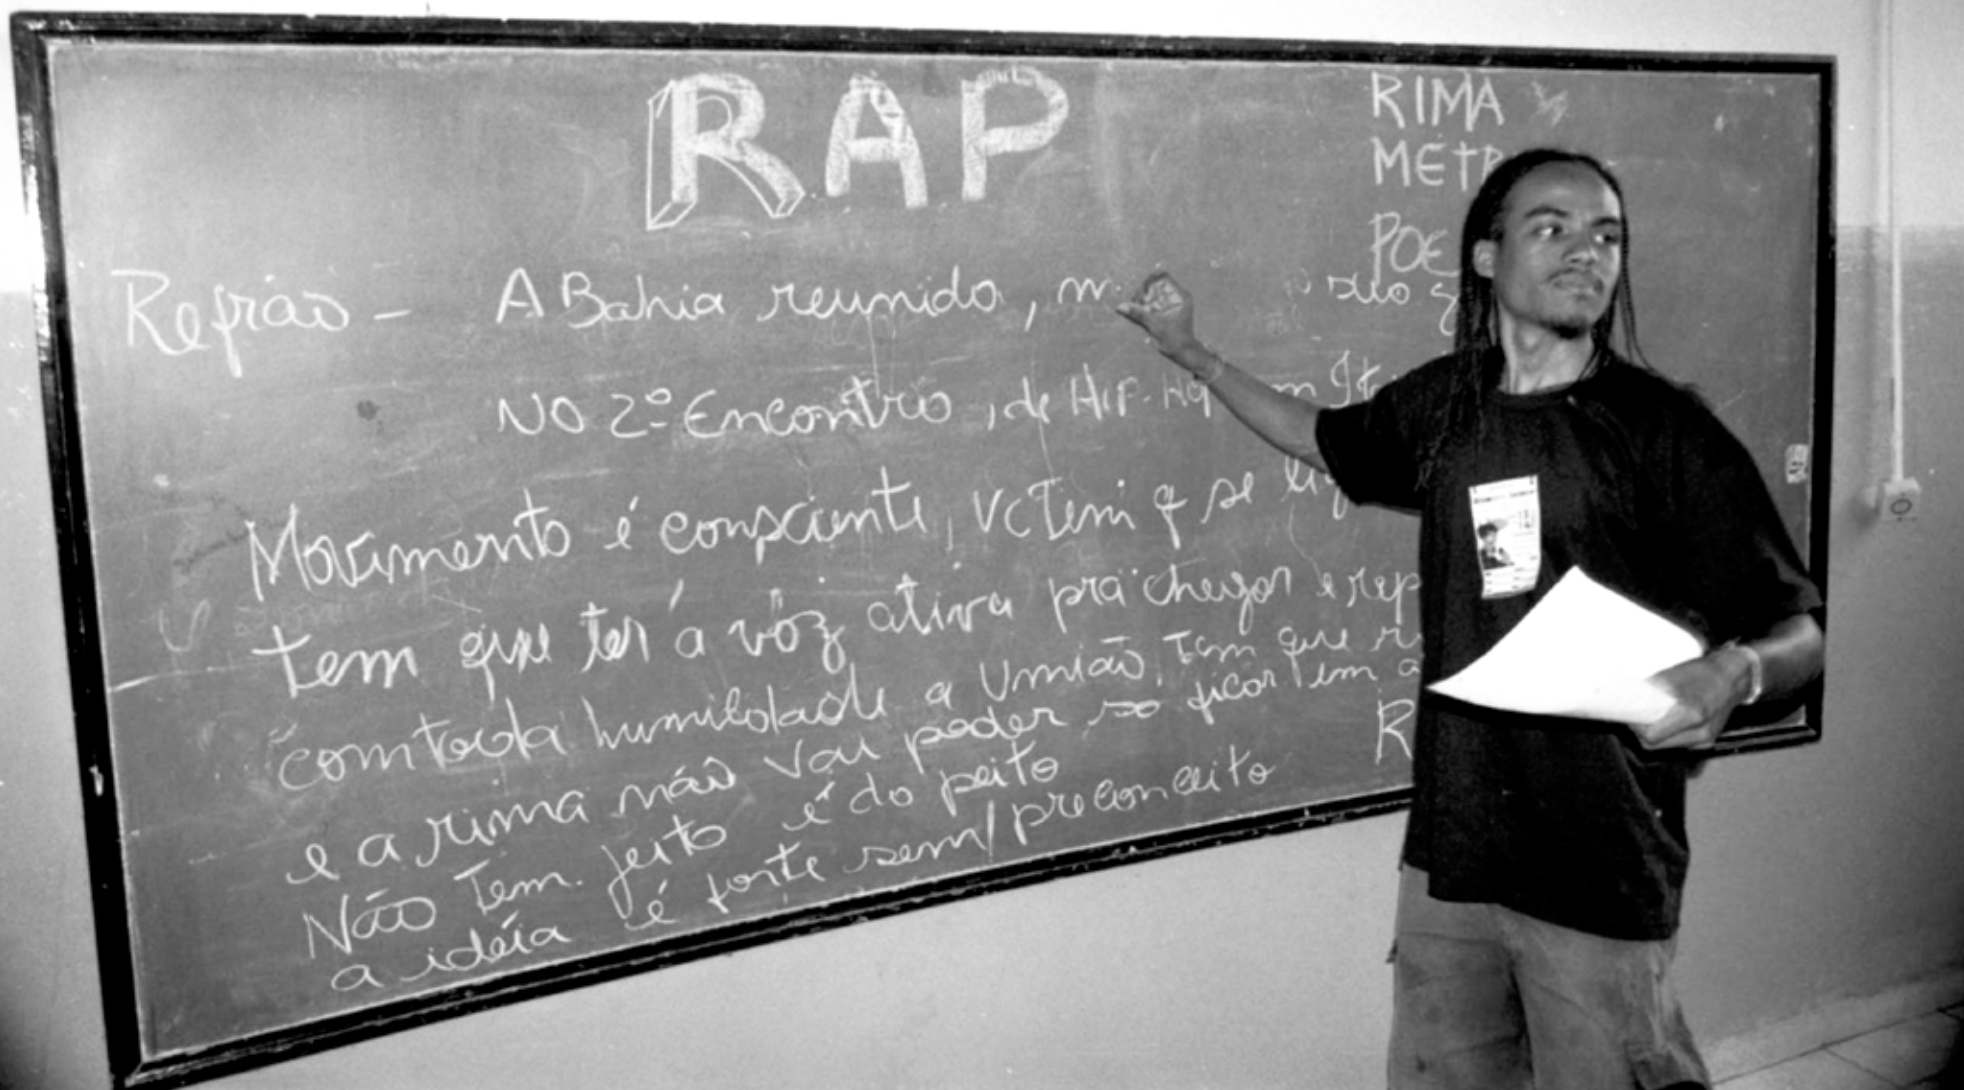 RAP
RIMA
MÉTR
POE
Refrão - A Bahia reunida, m
NO 2º Encontro, de HIP-HO em It
Movimento é consciente, vc tem q se lig
tem que ter a voz ativa pra chegar e rep
com toda humildade a União, tem que r
e a rima não vai poder so ficar em a
Não tem jeito é do peito
R
a idéia é forte sem preconceito